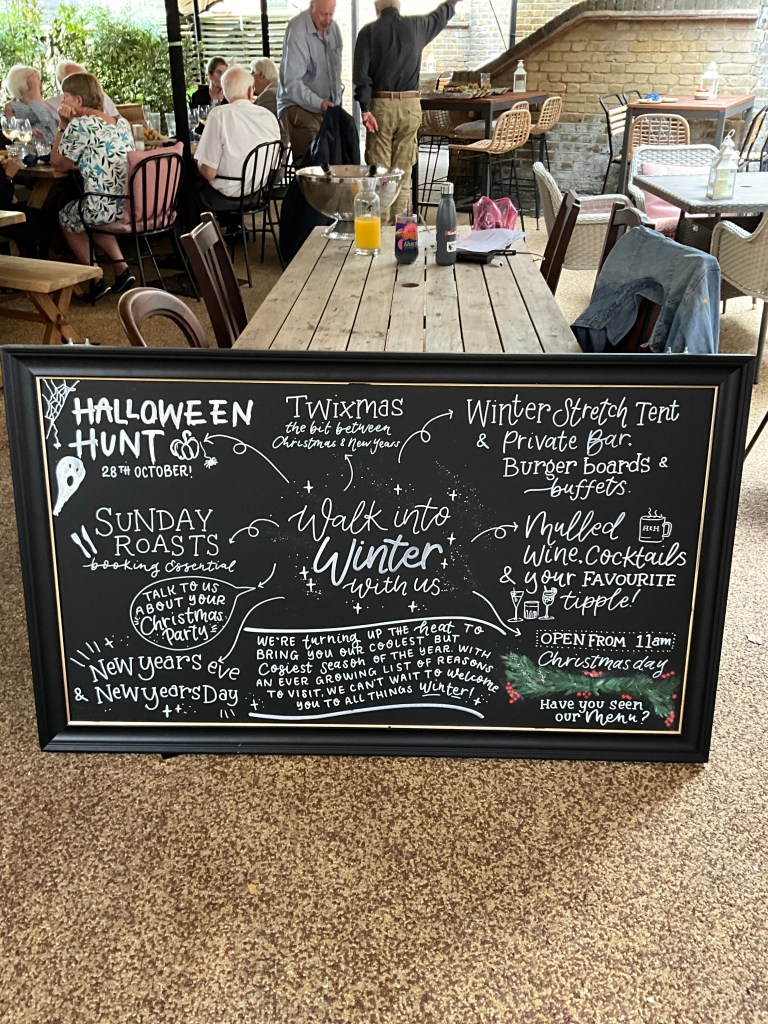 HALLOWEEN
HUNT
28TH OCTOBER!
TWixmas
the bit between
Christmas & New Years
Winter Stretch Tent
& Private Bar.
Burger boards &
buffets.
SUNDAY
ROASTS
booking essential
Walk into
Winter
with us
Mulled
Wine, Cocktails
& your FAVOURITE
tipple!
H&H
TALK TO US
ABOUT YOUR
Christmas
Party
New years eve
& New years Day
WE'RE turning UP THE heat TO
BRING YOU OUR COOLEST BUT
Cosiest season OF THE YEAR. WITH
AN EVER GROWING LIST OF REASONS
TO VISIT. WE CAN'T WAIT TO welcome
YOU TO ALL THINGS Winter!
OPEN FROM 11am
Christmas day
Have you seen
our Menu?